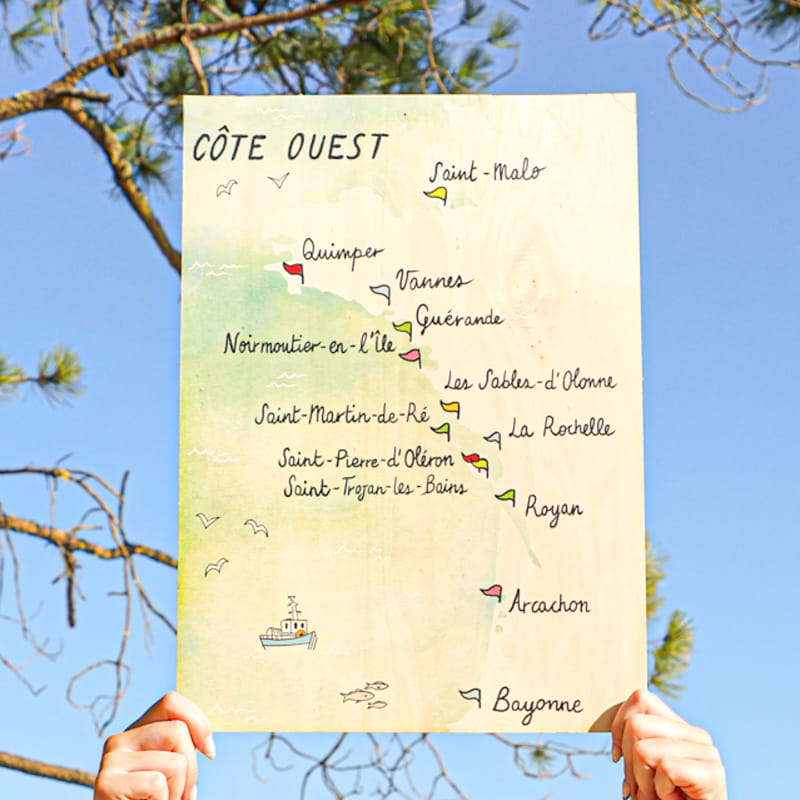 CÔTE OUEST
Saint-Malo
Quimper
Vannes
Guérande
Noirmoutier-en-l'Île
Les Sables-d'Olonne
Saint-Martin-de-Ré
La Rochelle
Saint-Pierre-d'Oléron
Saint-Trojan-les-Bains
Royan
Arcachon
Bayonne